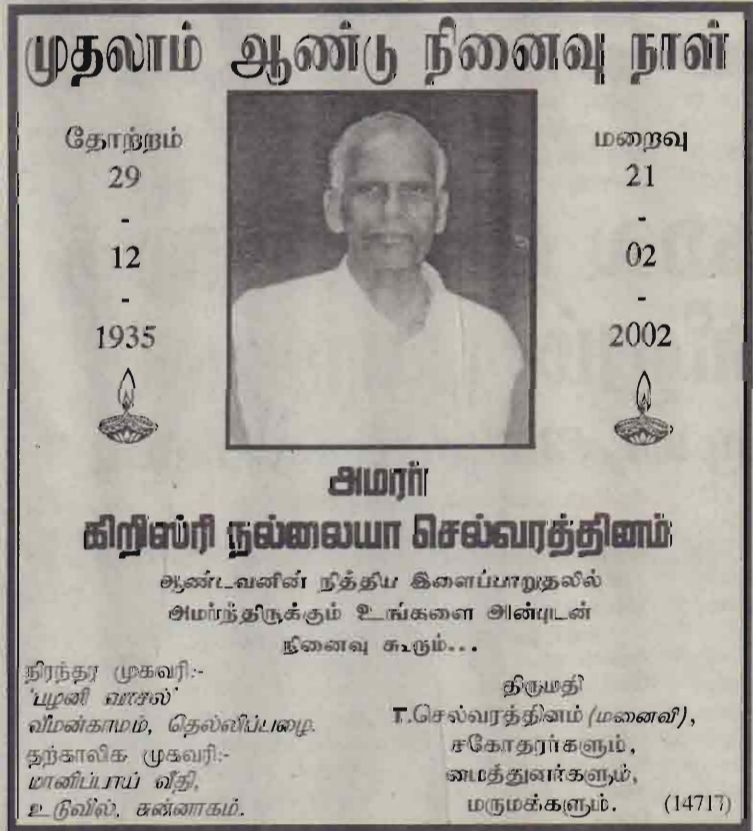 முதலாம் ஆண்டு நினைவு நாள்
தோற்றம்
29
-
12
-
1935
மறைவு
21
-
02
-
2002
அமரர்
கிறிஸ்ரி நல்லையா செல்வரத்தினம்
ஆண்டவனின் நித்திய இளைப்பாறுதலில்
அமர்ந்திருக்கும் உங்களை அன்புடன்
நினைவு கூரும்...
நிரந்தர முகவரி:-
'பழனி வாசல்'
வீமன்காமம், தெல்லிப்பழை.
தற்காலிக முகவரி:-
மானிப்பாய் வீதி,
உடுவில், சுன்னாகம்.
திருமதி
T.செல்வரத்தினம் (மனைவி),
சகோதரர்களும்,
மைத்துனர்களும்,
மருமக்களும். (14717)